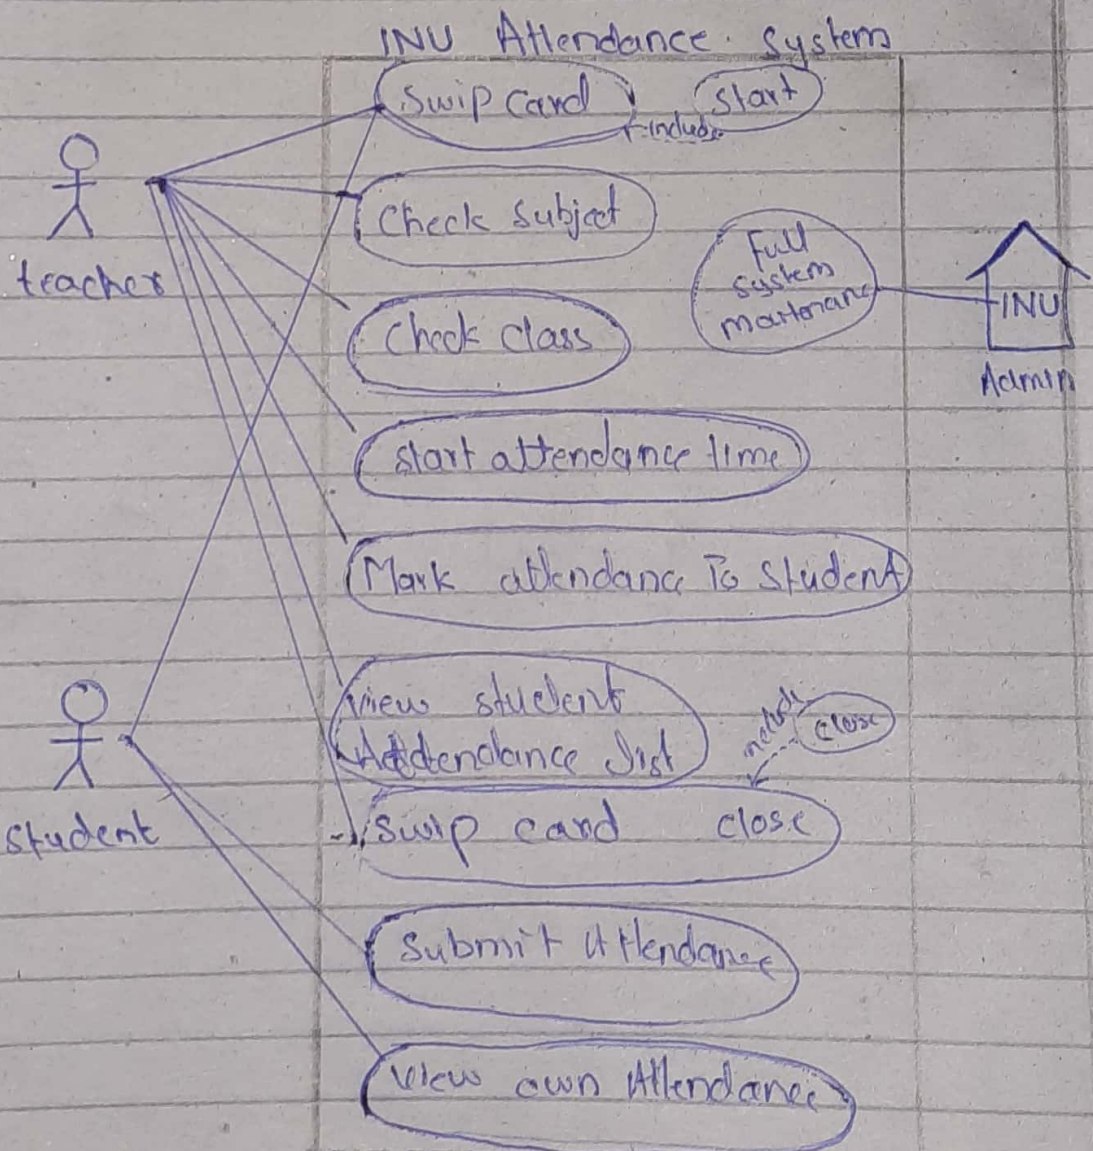 INU Attendance System
Swip Card
Start
include
Check Subject
teacher
Full
System
Check Class
INU
Admin
Start attendance time
Mark attendance To Student
View student
Attendance list
include
close
student
Swip card close
Submit Attendance
View own Attendance